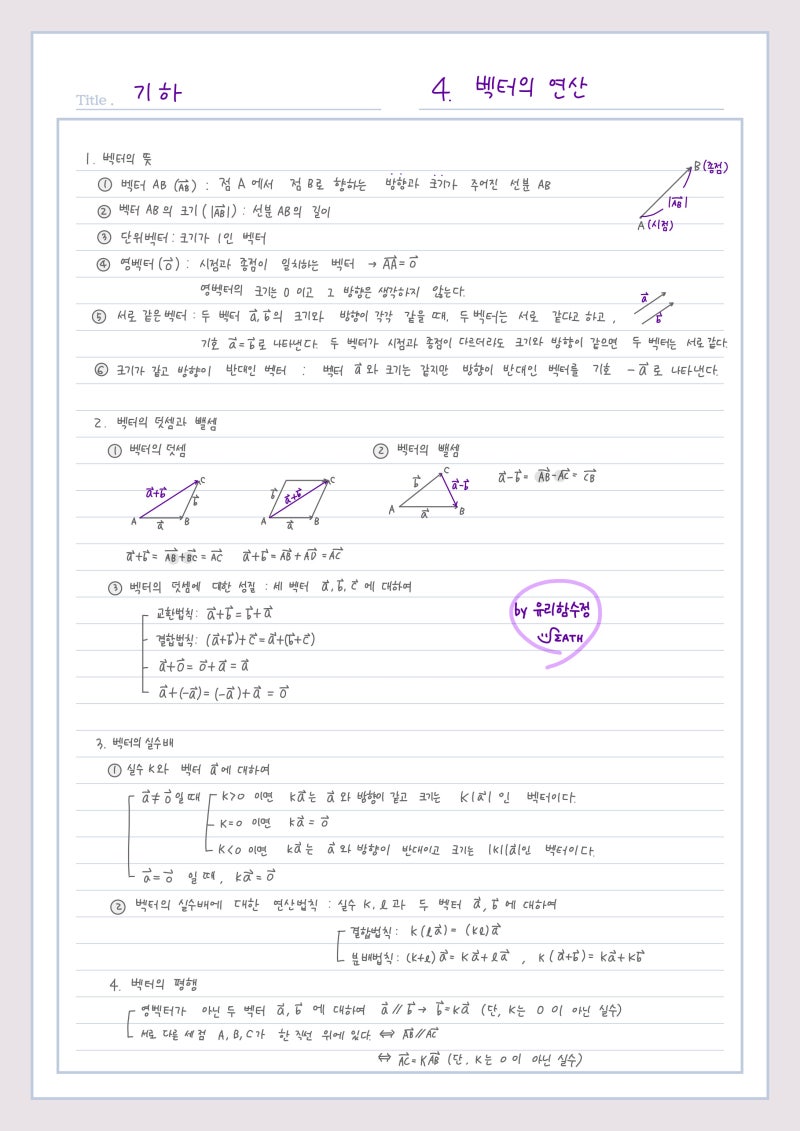 Title. 기하 4. 벡터의 연산
1. 벡터의 뜻
① 벡터 AB (\vec{AB}) : 점 A에서 점 B로 향하는 방향과 크기가 주어진 선분 AB
② 벡터 AB의 크기 (|\vec{AB}|) : 선분 AB의 길이
③ 단위벡터 : 크기가 1인 벡터
④ 영벡터 (\vec{0}) : 시점과 종점이 일치하는 벡터 → \vec{AA} = \vec{0}
영벡터의 크기는 0 이고 그 방향은 생각하지 않는다.
B (종점)
|\vec{AB}|
A (시점)
⑤ 서로 같은 벡터 : 두 벡터 \vec{a}, \vec{b}의 크기와 방향이 각각 같을 때, 두 벡터는 서로 같다고 하고,
기호 \vec{a} = \vec{b}로 나타낸다. 두 벡터가 시점과 종점이 다르더라도 크기와 방향이 같으면 두 벡터는 서로 같다.
\vec{a}
\vec{b}
⑥ 크기가 같고 방향이 반대인 벡터 : 벡터 \vec{a}와 크기는 같지만 방향이 반대인 벡터를 기호 -\vec{a}로 나타낸다.
2. 벡터의 덧셈과 뺄셈
① 벡터의 덧셈
\vec{a}+\vec{b} C \vec{b}
A \vec{a} B
\vec{b} \vec{a}+\vec{b} C
A \vec{a} B
\vec{a}+\vec{b} = \vec{AB}+\vec{BC} = \vec{AC} \vec{a}+\vec{b} = \vec{AB}+\vec{AD} = \vec{AC}
② 벡터의 뺄셈
\vec{b} C \vec{a}-\vec{b}
A \vec{a} B
\vec{a}-\vec{b} = \vec{AB}-\vec{AC} = \vec{CB}
③ 벡터의 덧셈에 대한 성질 : 세 벡터 \vec{a}, \vec{b}, \vec{c}에 대하여
교환법칙 : \vec{a}+\vec{b} = \vec{b}+\vec{a}
결합법칙 : (\vec{a}+\vec{b})+\vec{c} = \vec{a}+(\vec{b}+\vec{c})
\vec{a}+\vec{0} = \vec{0}+\vec{a} = \vec{a}
\vec{a}+(-\vec{a}) = (-\vec{a})+\vec{a} = \vec{0}
by 유리함수정
ΣATH
3. 벡터의 실수배
① 실수 k와 벡터 \vec{a}에 대하여
\vec{a} ≠ \vec{0}일 때 k>0 이면 k\vec{a}는 \vec{a}와 방향이 같고 크기는 k|\vec{a}|인 벡터이다.
k=0 이면 k\vec{a} = \vec{0}
k<0 이면 k\vec{a}는 \vec{a}와 방향이 반대이고 크기는 |k||\vec{a}|인 벡터이다.
\vec{a} = \vec{0} 일 때, k\vec{a} = \vec{0}
② 벡터의 실수배에 대한 연산법칙 : 실수 k, l과 두 벡터 \vec{a}, \vec{b}에 대하여
결합법칙 : k(l\vec{a}) = (kl)\vec{a}
분배법칙 : (k+l)\vec{a} = k\vec{a}+l\vec{a} , k(\vec{a}+\vec{b}) = k\vec{a}+k\vec{b}
4. 벡터의 평행
영벡터가 아닌 두 벡터 \vec{a}, \vec{b}에 대하여 \vec{a} // \vec{b} → \vec{b} = k\vec{a} (단, k는 0이 아닌 실수)
서로 다른 세 점 A, B, C가 한 직선 위에 있다. ⇔ \vec{AB} // \vec{AC}
⇔ \vec{AC} = k\vec{AB} (단, k는 0이 아닌 실수)